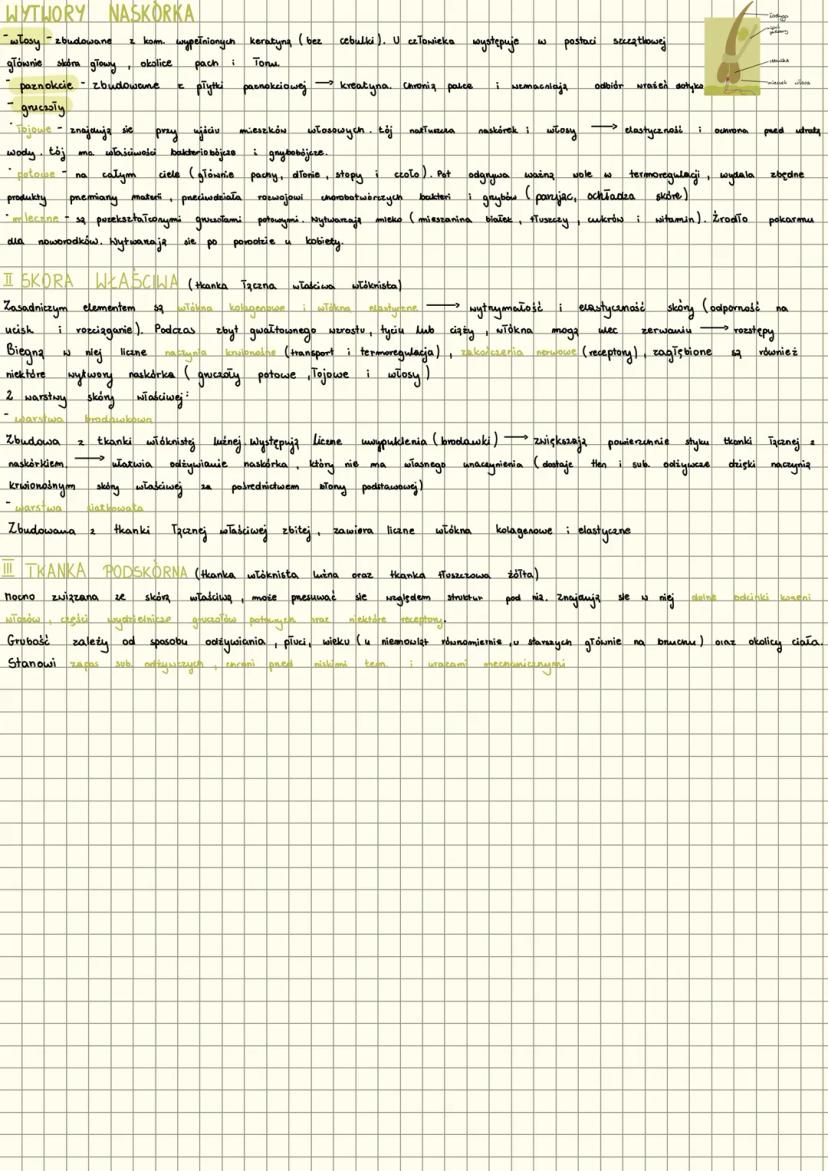 WYTWORY NASKÓRKA
- włosy - zbudowane z kom. wypełnionych keratyną (bez cebulki). U człowieka występuje w postaci szczątkowej
głównie skóra głowy, okolice pach i łonu.
- paznokcie - zbudowane z płytki paznokciowej → kreatyna. Chronią palce i wzmacniają odbiór wrażeń dotyku
- gruczoły
· łojowe - znajdują się przy ujściu mieszków włosowych. łój natłuszcza naskórek i włosy → elastyczność i ochrona przed utratą
wody. łój ma właściwości bakteriobójcze i grzybobójcze.
· potowe - na całym ciele (głównie pachy, dłonie, stopy i czoło). Pot odgrywa ważną role w termoregulacji, wydala zbędne
produkty przemiany materii, przeciwdziała rozwojowi chorobotwórczych bakterii i grzybów (parując, ochładza skórę)
· mleczne - są przekształconymi gruczołami potowymi. Wytwarzają mleko (mieszanina białek, tłuszczy, cukrów i witamin). Źrodło pokarmu
dla noworodków. Wytwarzają sie po porodzie u kobiety.
II SKÓRA WŁAŚCIWA (tkanka łączna właściwa włóknista)
Zasadniczym elementem są włókna kolagenowe i włókna elastyczne → wytrzymałość i elastyczność skóry (odporność na
ucisk i rozciąganie). Podczas zbyt gwałtownego wzrostu, tyciu lub ciąży, włókna mogą ulec zerwaniu → rozstępy
Biegną w niej liczne naczynia krwionośne (transport i termoregulacja), zakończenia nerwowe (receptory), zagłębione są również
niektóre wytwory naskórka (gruczoły potowe, łojowe i włosy)
2 warstwy skóry właściwej:
- warstwa brodawkowa
Zbudowa z tkanki włóknistej luźnej. Występują liczne uwypuklenia (brodawki) → zwiększają powierzchnie styku tkanki łącznej z
naskórkiem → ułatwia odżywianie naskórka, który nie ma własnego unaczynienia (dostaje tlen i sub. odżywcze dzięki naczynią
krwionośnym skóry właściwej za pośrednictwem błony podstawowej)
- warstwa siatkowata
Zbudowana z tkanki łącznej właściwej zbitej, zawiera liczne włókna kolagenowe i elastyczne
III TKANKA PODSKÓRNA (tkanka włóknista luźna oraz tkanka tłuszczowa żółta)
mocno związana ze skórą właściwą, może przesuwać sie względem struktur pod nią. Znajdują sie w niej dolne odcinki korzeni
włosów, części wydzielnicze gruczołów potowych oraz niektóre receptory.
Grubość zależy od sposobu odżywiania, płuci, wieku (u niemowląt równomiernie, u starszych głównie na brzuchu) oraz okolicy ciała.
Stanowi zapas sub. odżywczych, chroni przed niskimi tem. i urazami mechanicznymi